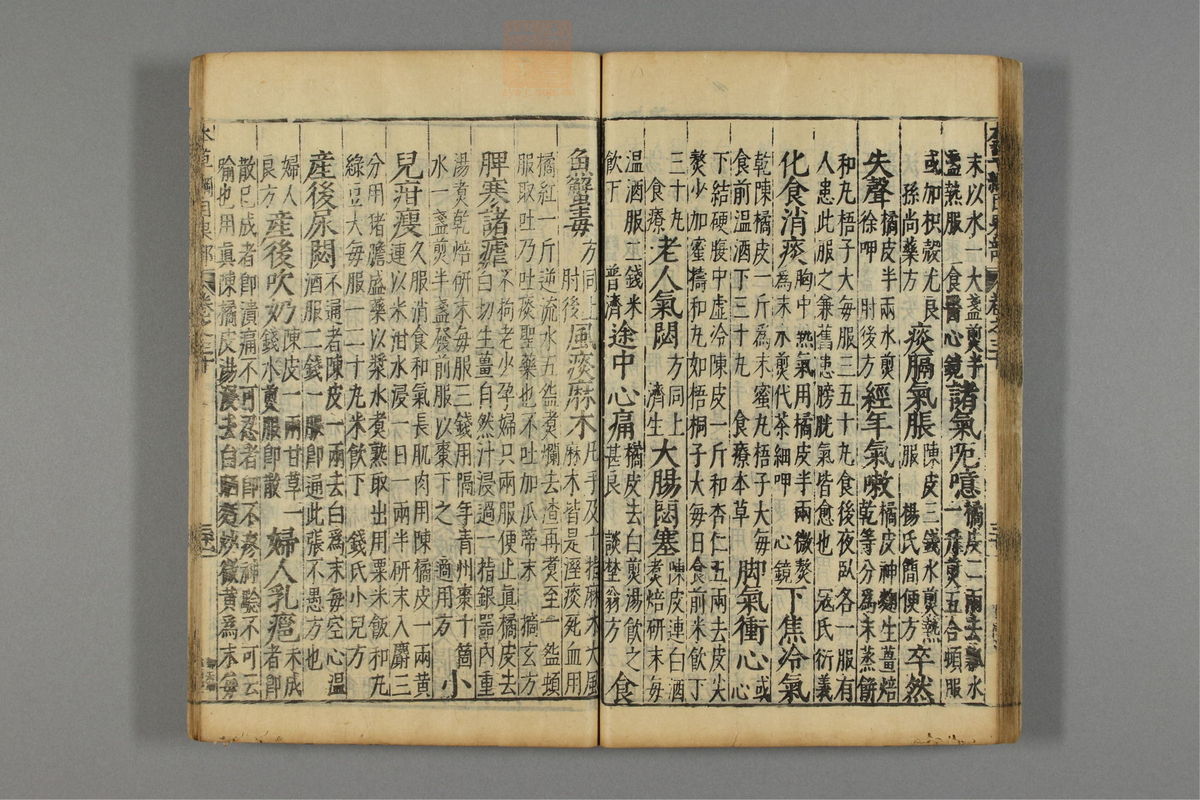 末以水一大盞煎半
盞熱服 食醫心鏡
諸氣呃噫
橘皮二兩去瓤水
一升煎五合頓服
或加枳殼尤良
孫尚藥方
痰膈氣脹
陳皮三錢水煎熱
服 楊氏簡便方
卒然
失聲
橘皮半兩水煎
徐呷 肘後方
經年氣嗽
橘皮神麴生薑焙
乾等分爲末蒸餅
和丸梧子大每服三五十丸食後夜臥各一服有
人患此服之兼舊患膀胱氣皆愈也 寇氏衍義
化食消痰
胸中熱氣用橘皮半兩微熬
爲末水煎代茶細呷 心鏡
下焦冷氣
乾陳橘皮一斤爲末蜜丸梧子大每
食前温酒下三十丸 食療本草
脚氣衝心
或
心
下結硬腹中虛冷陳皮一斤和杏仁五兩去皮尖
熬少加蜜擣和丸如梧桐子大每日食前米飲丁
三十丸
食療
老人氣閟
方同上
濟生
大腸閟塞
陳皮連白酒
煑焙研末每
温酒服二錢米
飲下 普濟
途中心痛
橘皮去白煎湯飲之
甚良 談埜翁方
食
魚蟹毒
方同上
肘後
風痰麻木
凡手及十指麻木大風
麻木皆是溼痰死血用
橘紅一斤逆流水五盌煑爛去渣再煑至一盌頓
服取吐乃吐痰聖藥也不吐加瓜蒂末 摘玄方
脾寒諸瘧
不拘老少孕婦只兩服便止眞橘皮去
白切生薑自然汁浸過一指銀器內重
湯煑乾焙研末每服三錢用隔年青州棗十箇
水一盞煎半盞發前服以棗下之 適用方
小
兒疳瘦
久服消食和氣長肌肉用陳橘皮一兩黃
連以米泔水浸一日一兩半研末入麝三
分用猪膽盛藥以漿水煑熟取出用粟米飯和丸
綠豆大每服一二十丸米飲下 錢氏小兒方
產後尿閟
不通者陳皮一兩去白爲末每空心温
酒服二錢一服卽通此張不愚方也
婦人
良方
產後吹奶
陳皮一兩甘草一
錢水煎服卽散
婦人乳癰
未成
者卽
散已成者卽潰痛不可忍者卽不疼神驗不可云
喻也用眞陳橘皮湯浸去白晒麪炒微黃爲末每